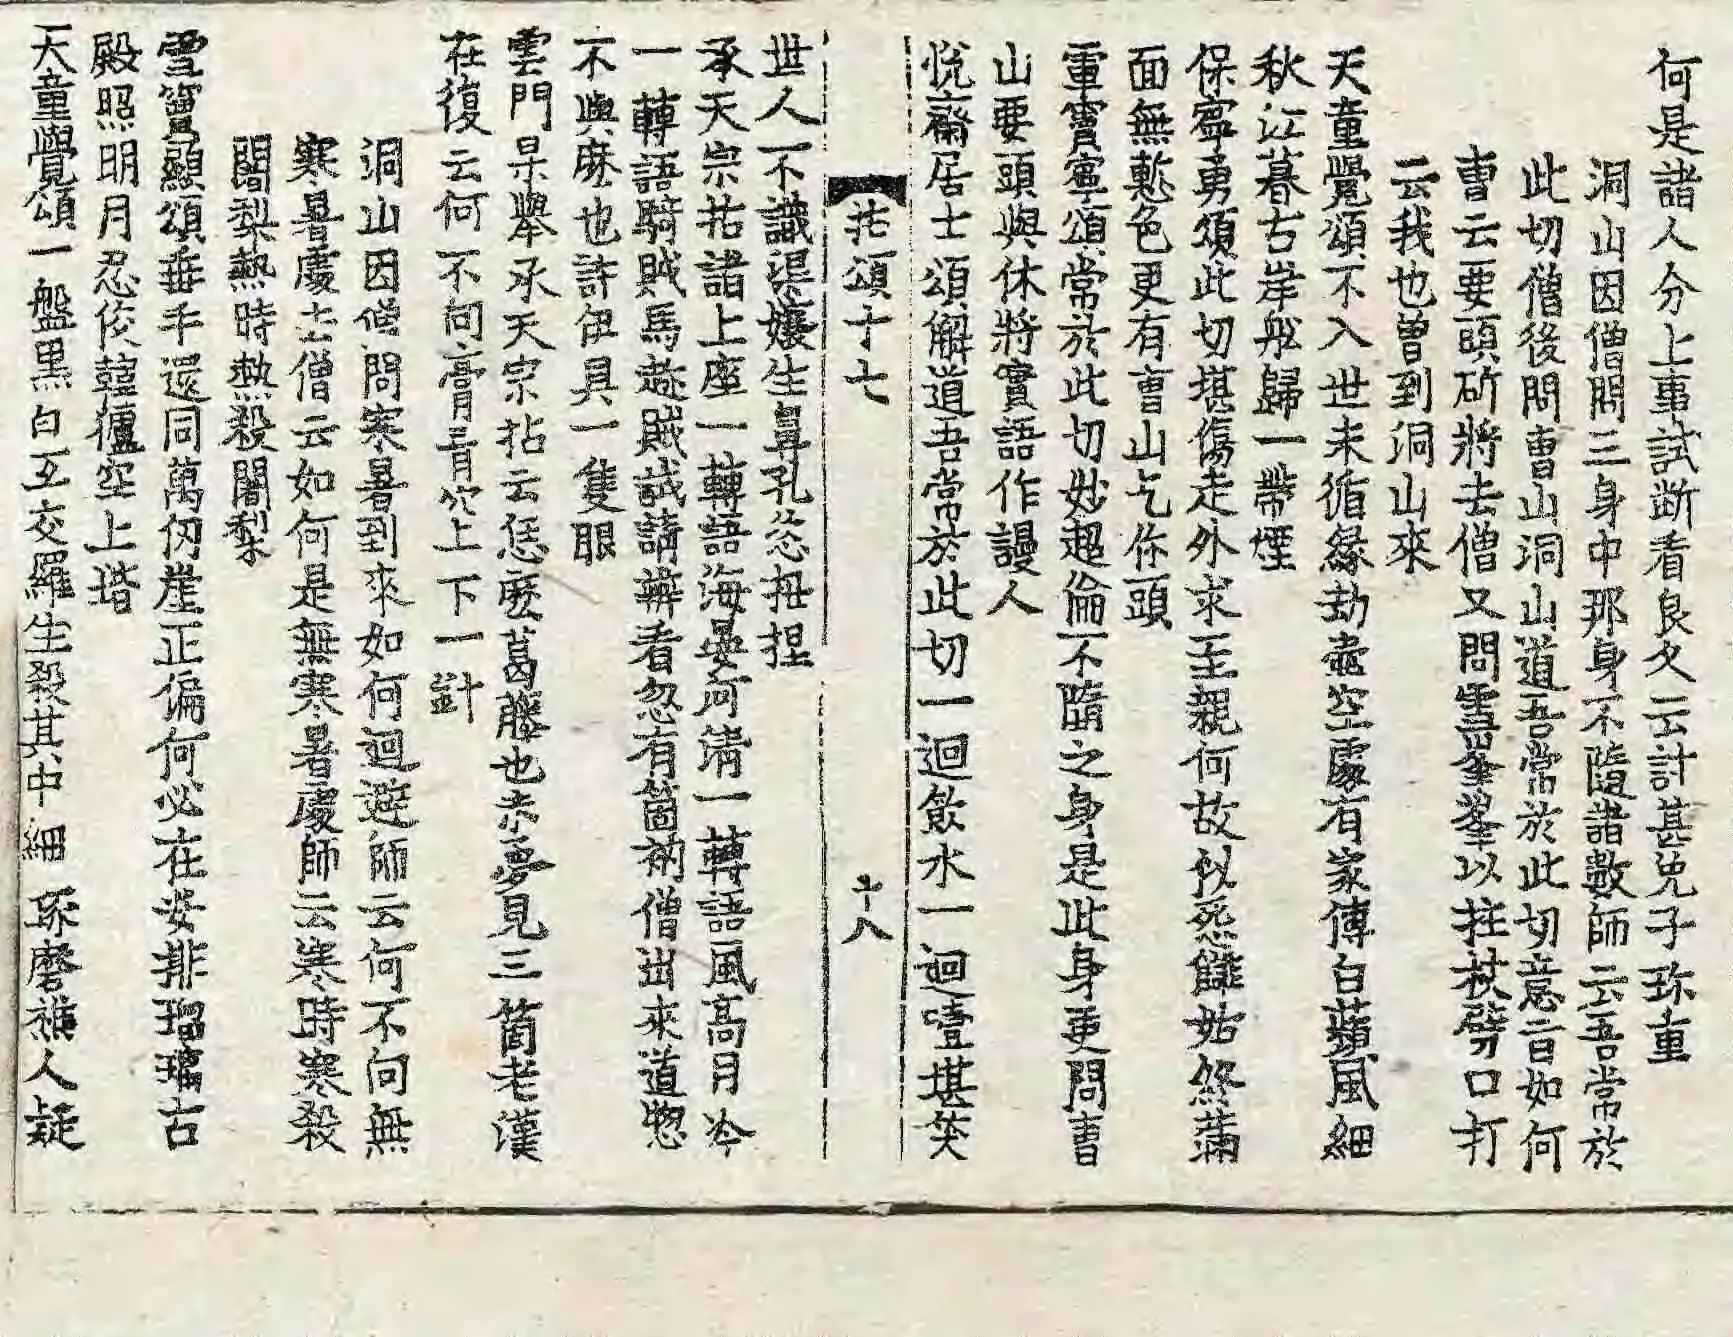 何是諸人分上事試断看良久云計甚免子珎重
洞山因僧問三身中那身不隨諸數師云吾常於
此切僧後問曺山洞山道吾常於此切意旨如何
曺云要頭斫將去僧又問雪峯峯以拄杖劈口打
云我也曾到洞山來
天童覺頌不入世未循緣劫壷空處有家傳白蘋風細
秋江暮古岸舡歸一帶煙
保寧勇頌此切堪傷走外求至親何故似怨讎始終滿
面無慙色更有曺山乞你頭
霊寶寧頌常於此切妙超倫不隨之身是此身更問曺
山要頭與休將實語作謾人
悅齋居士頌解道吾常於此切一迴飲水一迴噎堪笑
拈頌十七 十八
世人不識渠孃生鼻孔恣扭揑
承天宗拈諸上座一轉語海晏河清一轉語風高月冷
一轉語騎賊馬趂賊試請辨看忽有箇衲僧出來道惣
不與麽也許伊具一隻眼
雲門杲舉承天宗拈云恁麽葛藤也未夢見三箇老漢
在復云何不向膏肓穴上下一針
洞山因僧問寒暑到來如何迴避師云何不向無
寒暑處去僧云如何是無寒暑處師云寒時寒殺
闍梨熱時熱殺闍梨
雪竇顯頌垂手還同萬仞崖正偏何必在安排瑠璃古
殿照明月忍俊韓獹空上堦
天童覺頌一盤黑白互交羅生殺其中細琢磨裋人疑